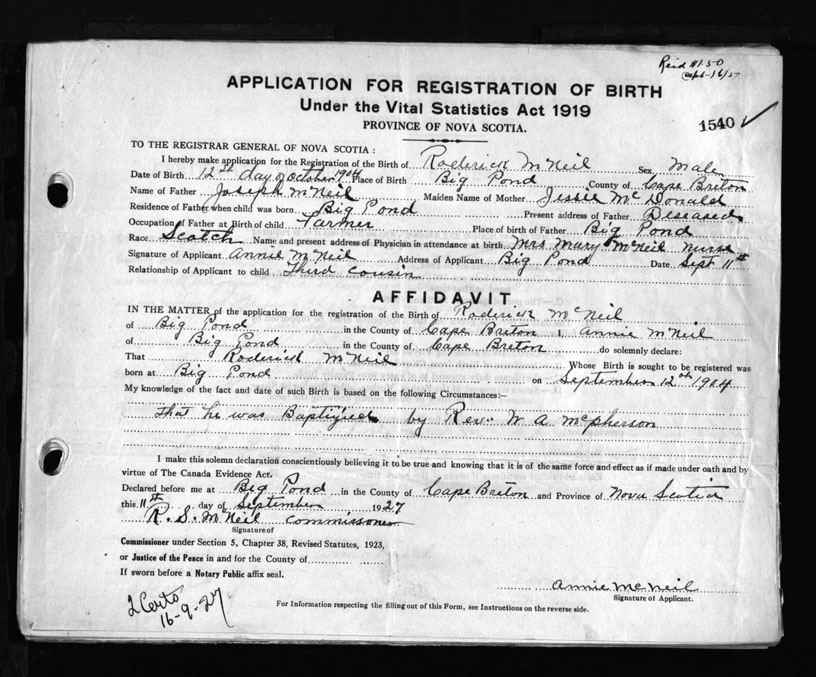 Recd $1.50
Sept-16/27
APPLICATION FOR REGISTRATION OF BIRTH
Under the Vital Statistics Act 1919
1540 ✓
PROVINCE OF NOVA SCOTIA.
TO THE REGISTRAR GENERAL OF NOVA SCOTIA :
I hereby make application for the Registration of the Birth of Roderick McNeil Sex Male
Date of Birth 12th day of October 1904 Place of Birth Big Pond County of Cape Breton
Name of Father Joseph McNeil Maiden Name of Mother Jessie McDonald
Residence of Father when child was born Big Pond Present address of Father Deseased
Occupation of Father at Birth of child Farmer Place of birth of Father Big Pond
Race Scotch Name and present address of Physician in attendance at birth Mrs Mary McNeil nurse
Signature of Applicant Annie McNeil Address of Applicant Big Pond Date Sept 11th
Relationship of Applicant to child Third Cousin
AFFIDAVIT
IN THE MATTER of the application for the registration of the Birth of Roderick McNeil
of Big Pond in the County of Cape Breton I, Annie McNeil
of Big Pond in the County of Cape Breton do solemnly declare:
That Roderick McNeil Whose Birth is sought to be registered was
born at Big Pond on September 12th 1904
My knowledge of the fact and date of such Birth is based on the following Circumstances:-
That he was Baptized by Rev. W A McPherson
I make this solemn declaration conscientiously believing it to be true and knowing that it is of the same force and effect as if made under oath and by
virtue of The Canada Evidence Act.
Declared before me at Big Pond in the County of Cape Breton and Province of Nova Scotia
this 11th day of September 1927
R. S. McNeil commissoner
Signature of
Commissioner under Section 5, Chapter 38, Revised Statutes, 1923,
or Justice of the Peace in and for the County of
If sworn before a Notary Public affix seal.
Annie McNeil
Signature of Applicant.
2 Certs
16-9-27
For Information respecting the filling out of this Form, see Instructions on the reverse side.